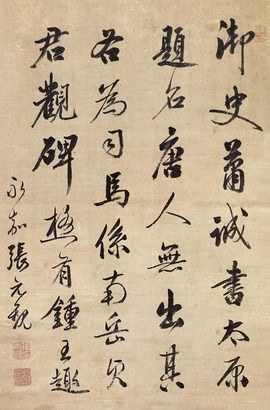 御史蕭誠書太原
題名唐人無出其
右為司馬係南岳真
君觀碑極有鍾王趣
永嘉張元觀